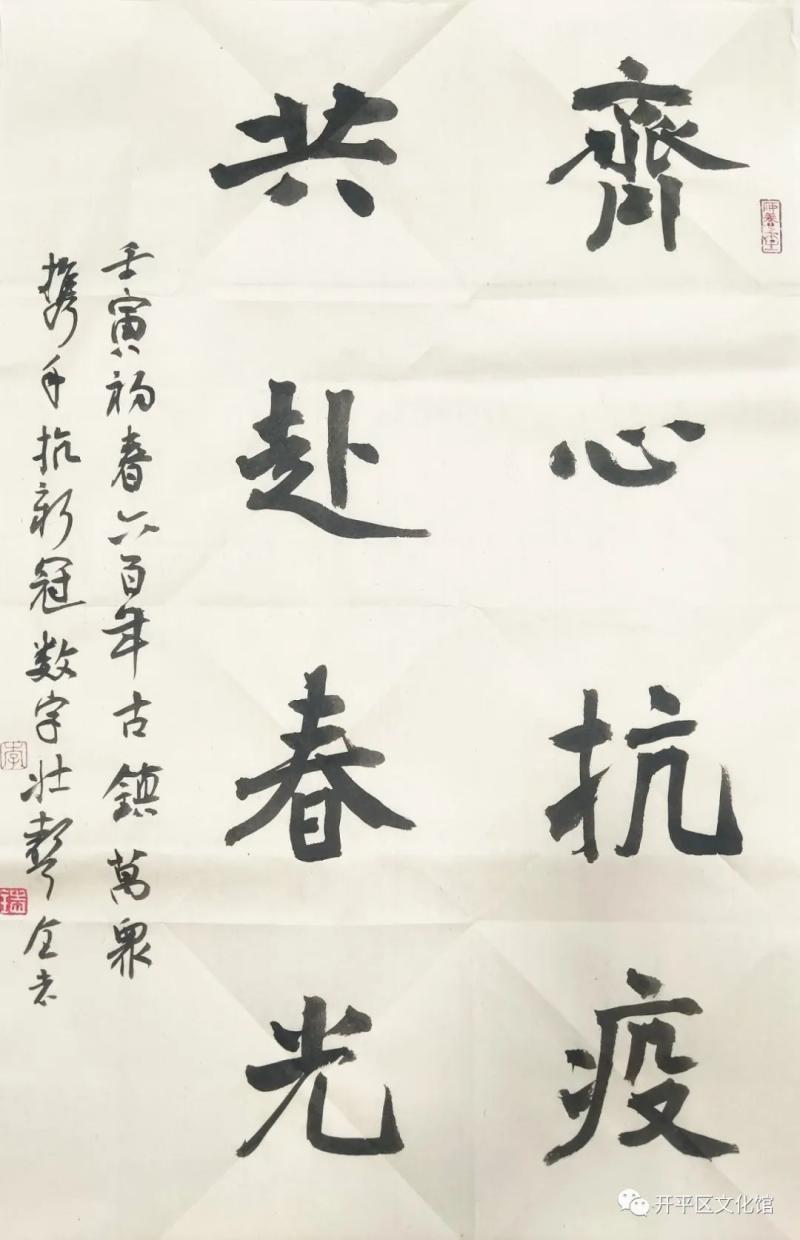 齊心抗疫
共赴春光
壬寅初春六百年古鎮萬眾
携手抗新冠数字壮
李
瑞
开平区文化馆